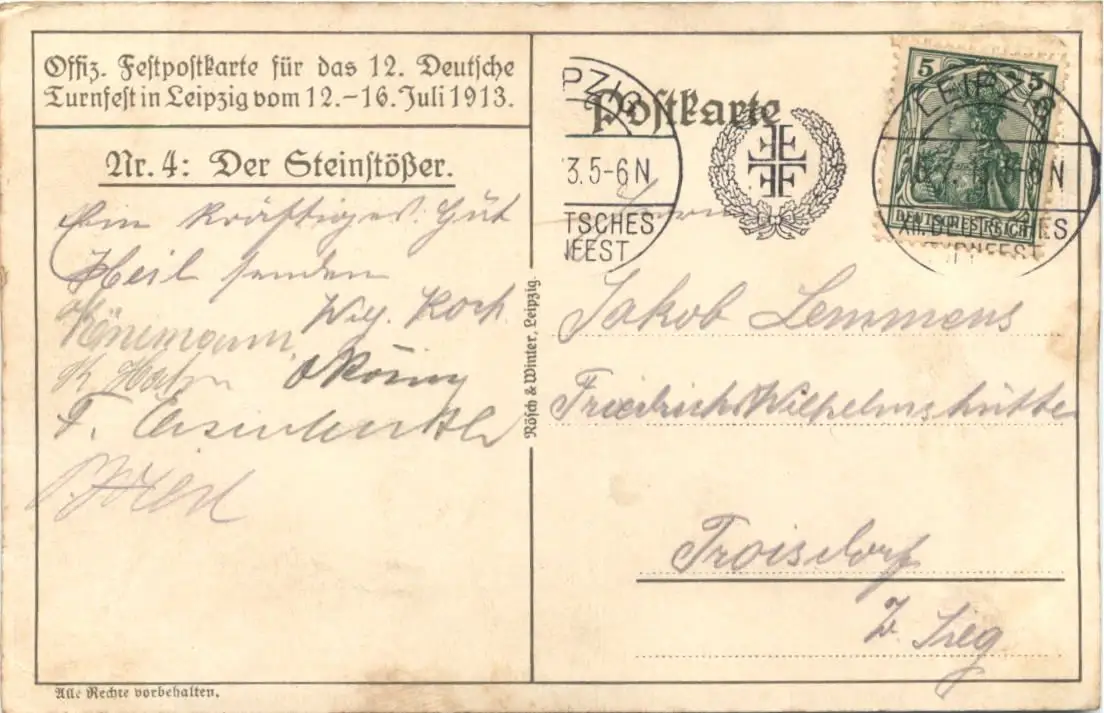 Offiz. Festpostkarte für das 12. Deutsche
Turnfest in Leipzig vom 12.-16. Juli 1913.
Nr. 4: Der Steinstößer.
Ein kräftiges Gut
Heil senden
Wilh. Koch
Könemann
K. Hahn
F.
Rösch & Winter, Leipzig.
Alle Rechte vorbehalten.
Postkarte
PZIG
13.5-6N
TSCHES
NFEST
5 5
DEUTSCHES REICH
LEIPZIG
5-6N
XII. DEUTSCHES
TURNFEST
Herrn
Jakob Lemmens
Friedrich Wilhelmshütte
Troisdorf
Sieg